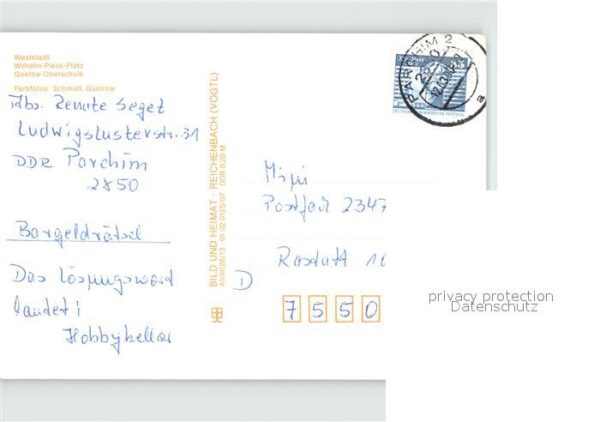 Weststadt
Wilhelm-Pieck-Platz
Goethe-Oberschule
Farbfotos: Schmidt, Güstrow
Abs. Renate Segel
Ludwigslusterstr. 31
DDR Parchim
2850
Bargeldrätsel
Das Lösungswort
lautet:
Hobbykeller
BILD UND HEIMAT · REICHENBACH (VOGTL)
DDR 0,20 M
PARCHIM 2
2850
a
Mini
Postfach 2347
Rastatt 16
D
7550
privacy protection
Datenschutz